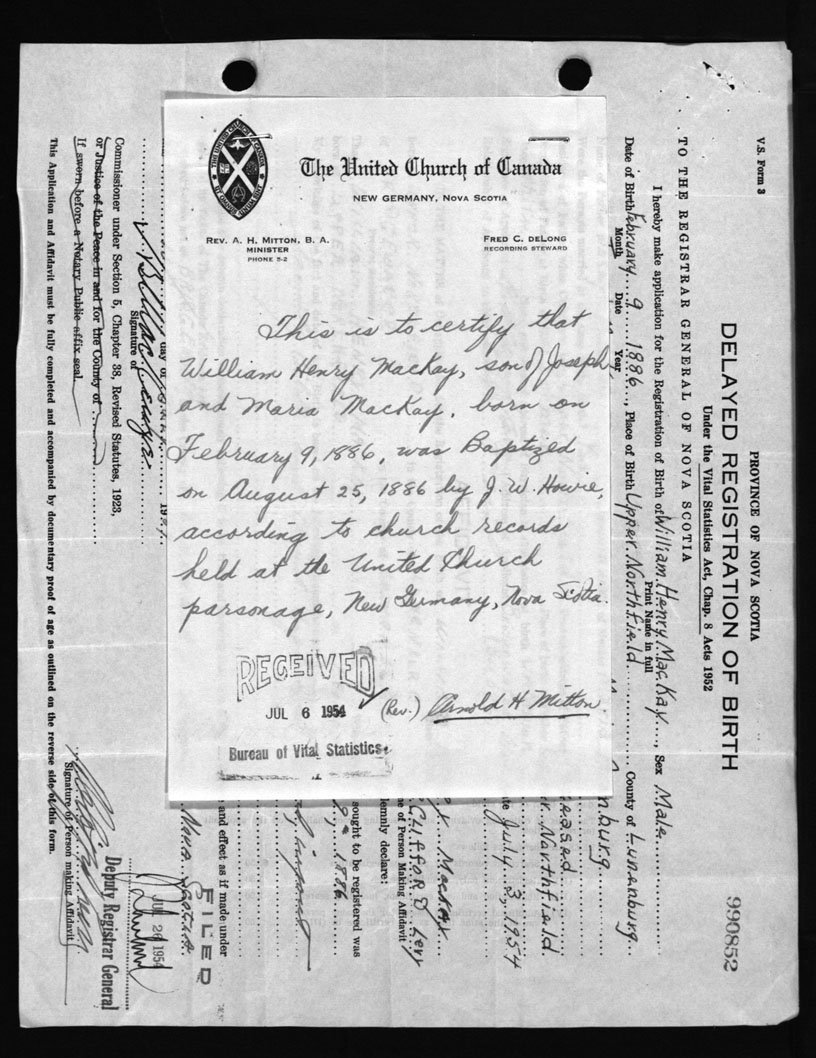 The United Church of Canada
NEW GERMANY, NOVA SCOTIA
REV. A. H. MITTON, B. A.
MINISTER
PHONE 5-2
FRED C. DELONG
RECORDING STEWARD
This is to certify that
William Henry MacKay, son of Joseph
and Maria MacKay, born on
February 9, 1886, was Baptized
on August 25, 1886 by J. W. Howie,
according to church records
held at the United Church
parsonage, New Germany, Nova Scotia.
(Rev.) Arnold H Mitton.
RECEIVED
JUL 6 1954
Bureau of Vital Statistics
V.S. Form 3
PROVINCE OF NOVA SCOTIA
DELAYED REGISTRATION OF BIRTH
990852
Under the Vital Statistics Act, Chap. 8 Acts 1952
TO THE REGISTRAR GENERAL OF NOVA SCOTIA
I hereby make application for the Registration of Birth of William Henry MacKay, Sex Male
Print Name in full
Date of Birth February 9 1886, Place of Birth Upper Northfield County of Lunenburg
Month Date Year
Northfield
July 3, 1954
MacKay
Clifford Levy
of Person Making Affidavit
lemnly declare:
sought to be registered was
9, 1886
and effect as if made under
day of
Signature of
Commissioner under Section 5, Chapter 38, Revised Statutes, 1923,
or Justice of the Peace in and for the County of
If sworn before a Notary Public affix seal.
This Application and Affidavit must be fully completed and accompanied by documentary proof of age as outlined on the reverse side of this form.
Signature of Person making Affidavit
FILED
JUL 20 1954
Deputy Registrar General